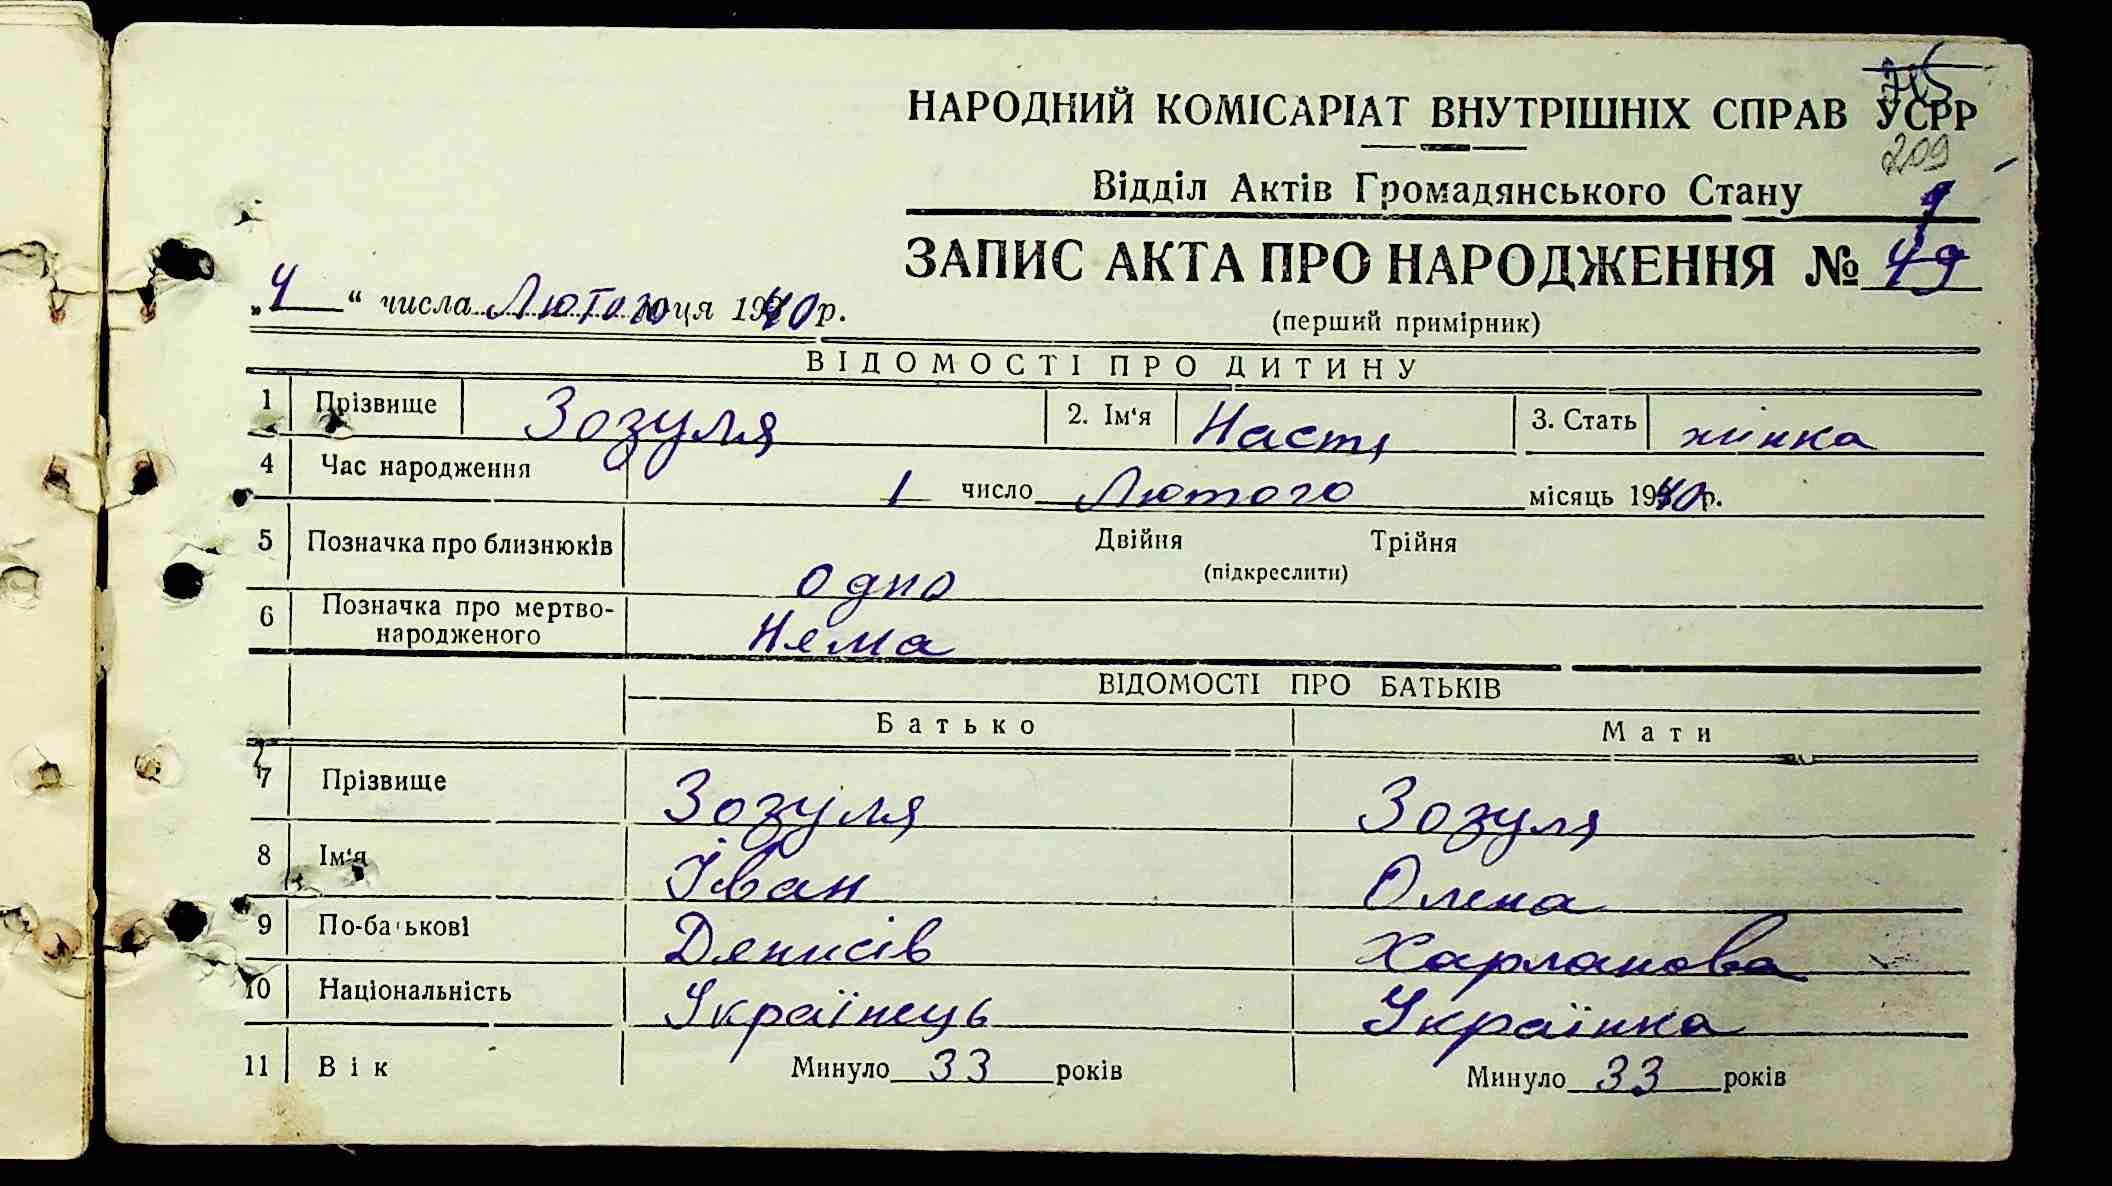 НАРОДНИЙ КОМІСАРІАТ ВНУТРІШНІХ СПРАВ УСРР
209
Відділ Актів Громадянського Стану
9
ЗАПИС АКТА ПРО НАРОДЖЕННЯ № 49
„4“ числа Лютого м-ця 1940 р.
(перший примірник)
ВІДОМОСТІ ПРО ДИТИНУ
1 Прізвище Зозуля 2. Ім‘я Настя 3. Стать жінка
4 Час народження 1 число Лютого місяць 1940 р.
5 Позначка про близнюків одно Двійня Трійня
(підкреслити)
6 Позначка про мертво-
народженого Нема
ВІДОМОСТІ ПРО БАТЬКІВ
Батько Мати
7 Прізвище Зозуля Зозуля
8 Ім‘я Іван Олена
9 По-батькові Денисів Харланова
10 Національність Українець Українка
11 Вік Минуло 33 років Минуло 33 років